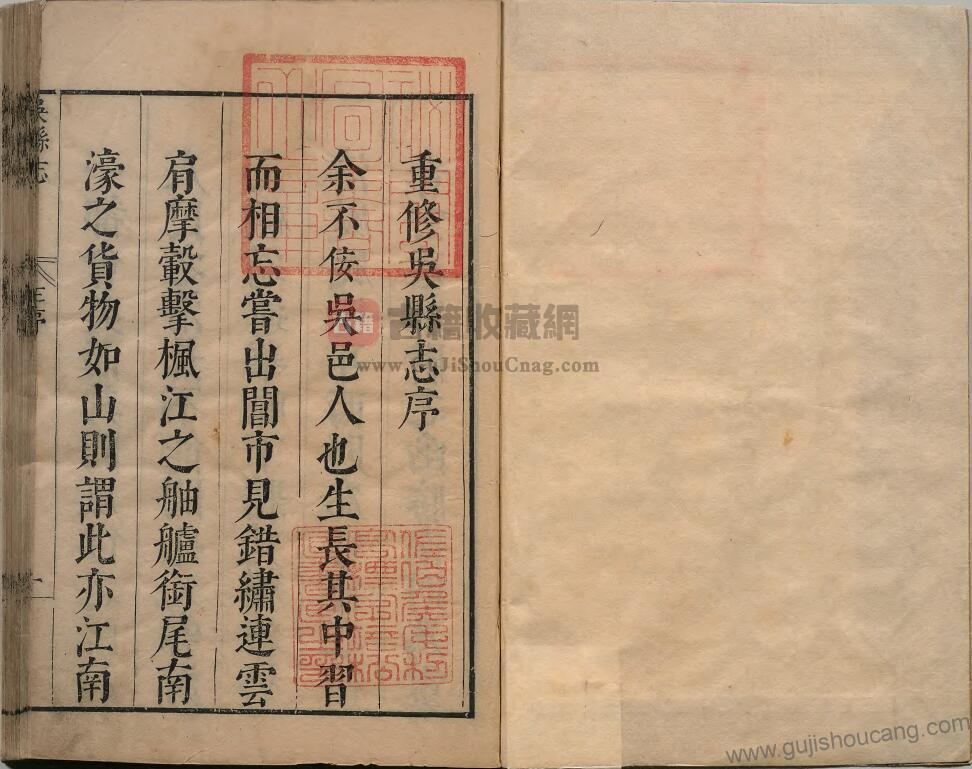 重修吳縣志序
余不佞吳邑人也生長其中習
而相忘嘗出閶市見錯繡連雲
肩摩轂擊楓江之舳艫銜尾南
濠之貨物如山則謂此亦江南
吳縣志
王序
一
古籍
古籍收藏網
www.GuJiShouCnag.com
www.gujishoucang.com